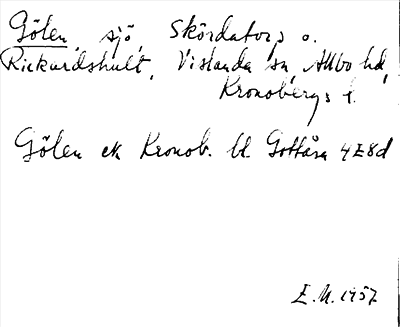 Gölen, sjö, Skördatorp o.
Rickardshult, Vislanda sn, Allbo hd,
Kronobergs l.
Gölen ek Kronob. bl. Gottåsa 4E8d
E.M. 1957